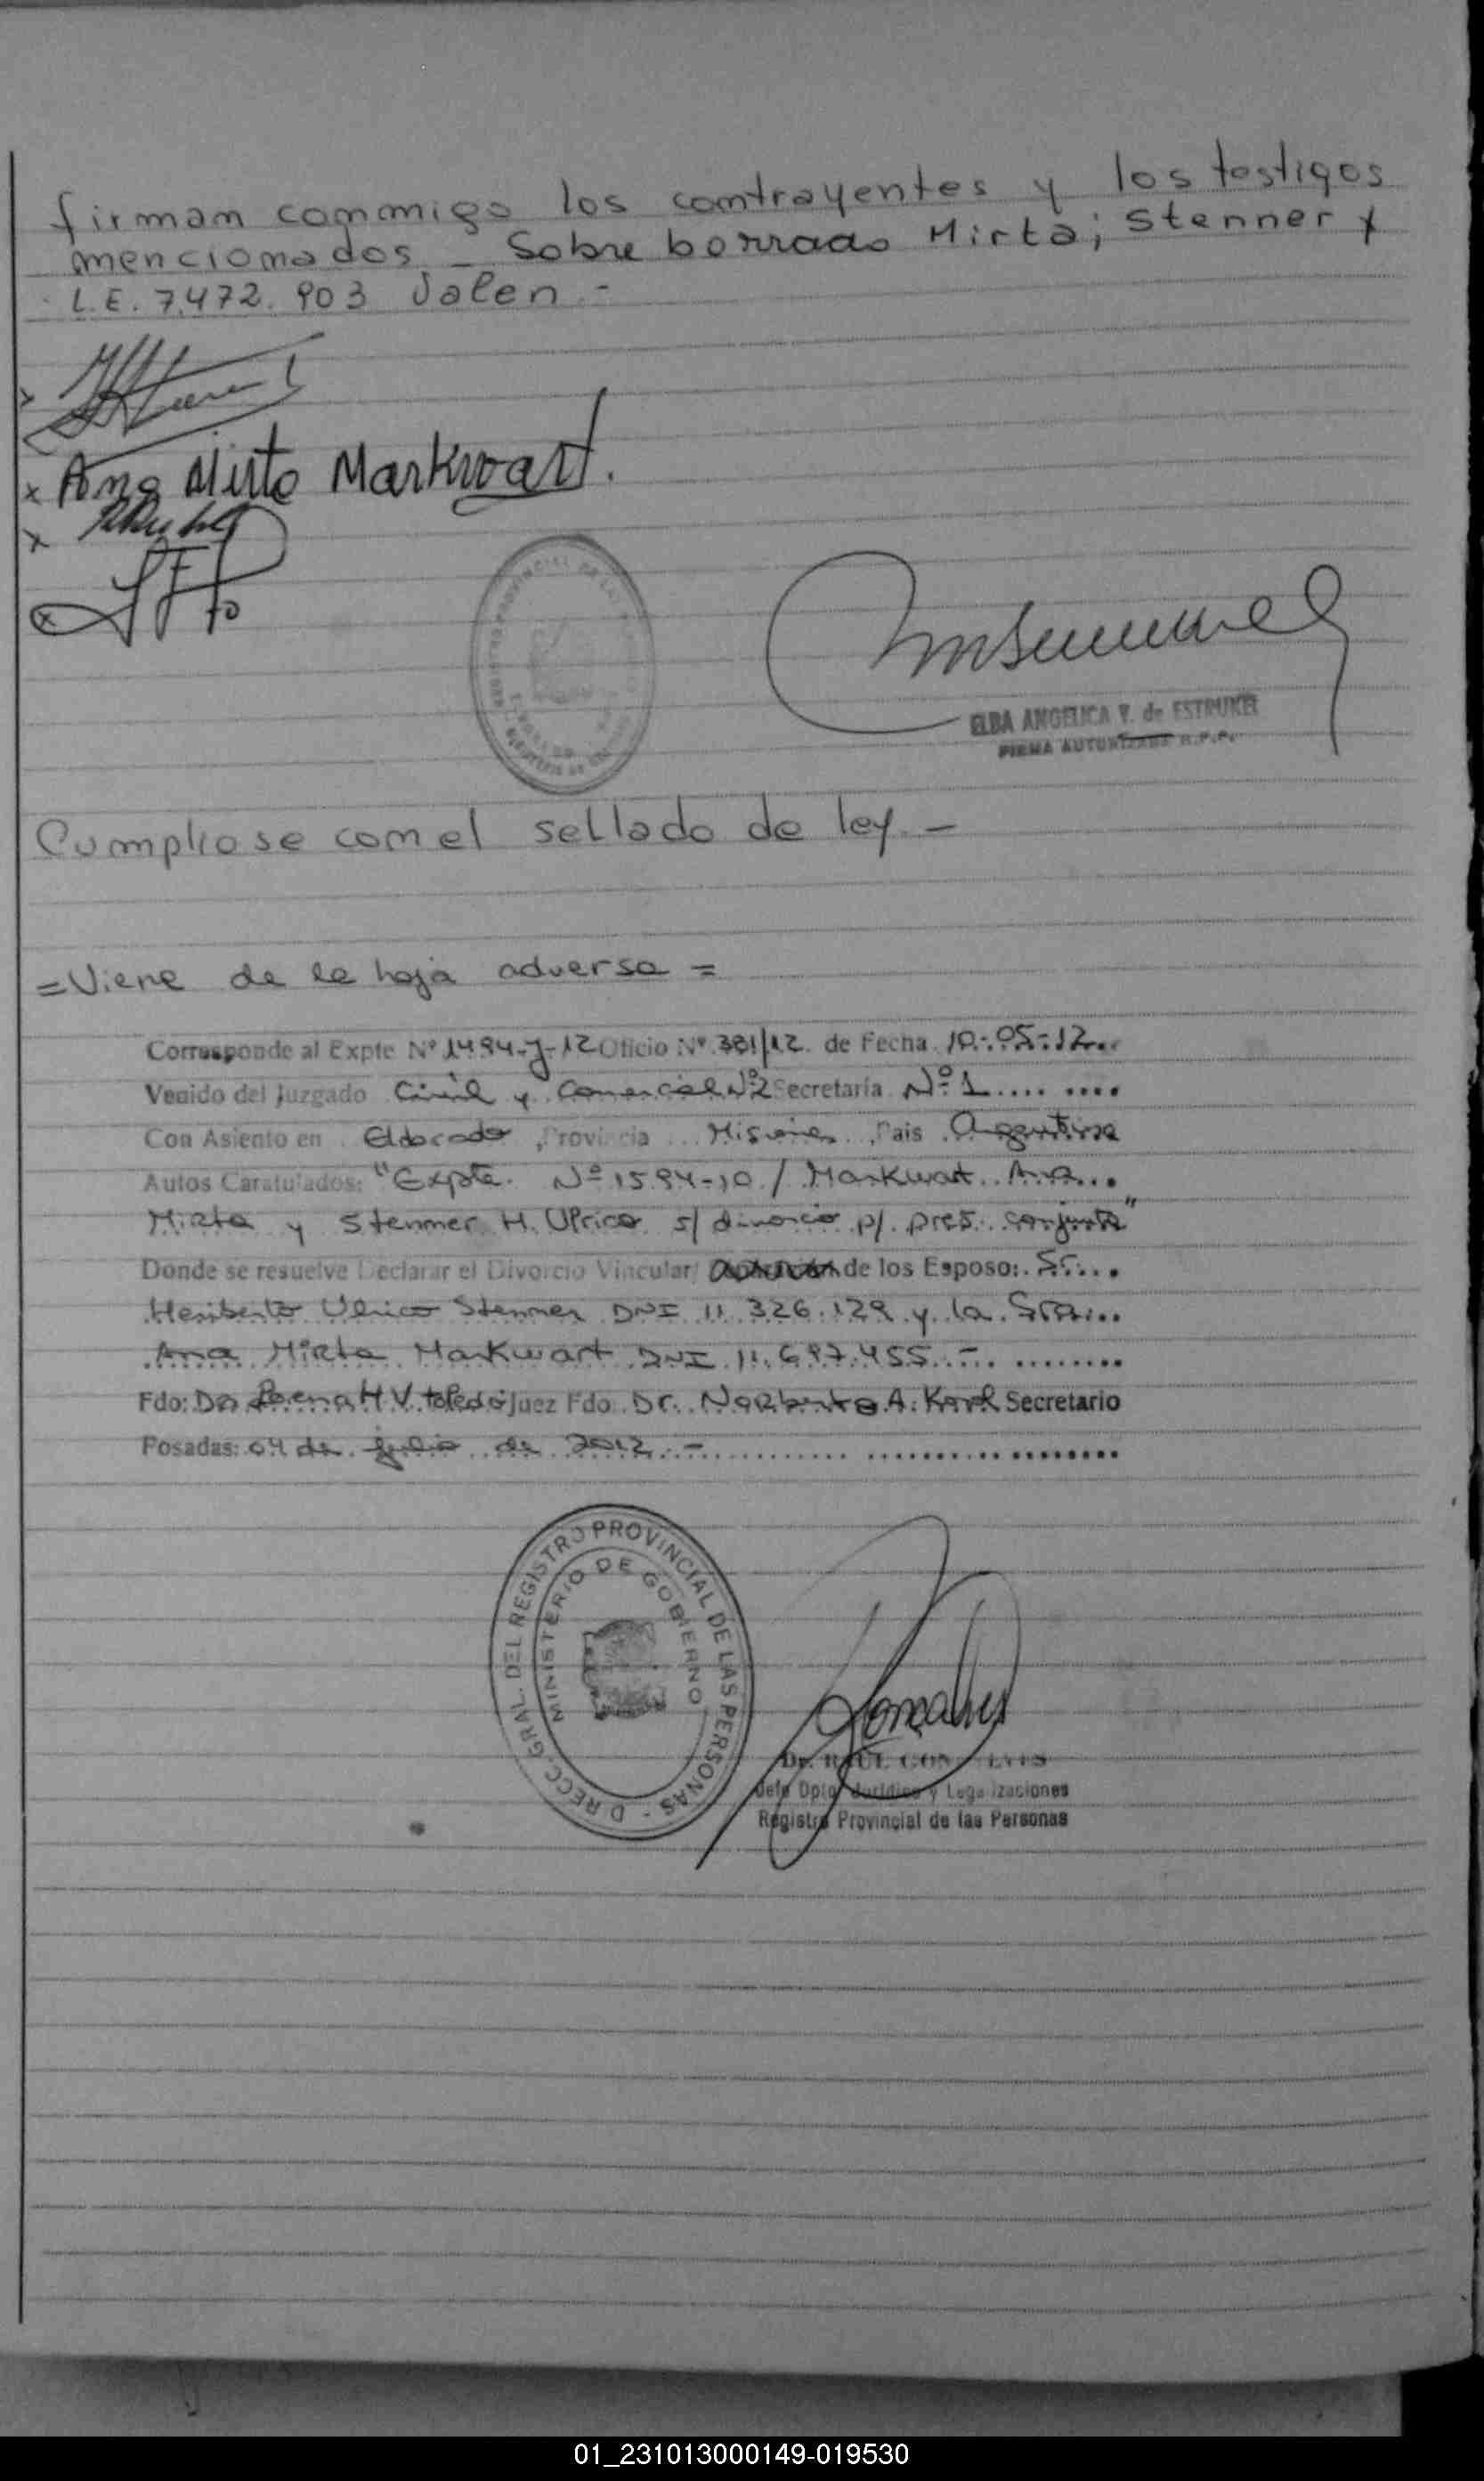 firman conmigo los contrayentes y los testigos
mencionados - Sobre borrado Mirta; Stenner y
L.E. 7.472.903 Valen -
x
x Ana Mirta Markwart.
x
x
ELBA ANGELICA V. de ESTRUKEL
FIRMA AUTORIZADA R.P.P.
Cumpliose con el sellado de ley -
= Viene de la hoja adversa =
Corresponde al Expte Nº 1494-J-12 Oficio Nº 381/12 de Fecha 10-05-12
Venido del Juzgado Civil y Comercial Nº2 Secretaría Nº 1
Con Asiento en Eldorado, Provincia Misiones, Pais Argentina
Autos Caratulados: "Expte. Nº 1594-10 / Markwart Ana
Mirta y Stenner H. Ulrico s/ divorcio p/ pres. conjunta"
Donde se resuelve Declarar el Divorcio Vincular de los Esposo: Sr.
Heriberto Ulrico Stenner DNI 11.326.129 y la Sra.
Ana Mirta Markwart DNI 11.697.455.-
Fdo: Dra H V. Toledo Juez Fdo Dr. Norberto A. Korol Secretario
Posadas: 04 de julio de 2012.-
DIRECC. GRAL. DEL REGISTRO PROVINCIAL DE LAS PERSONAS -
MINISTERIO DE GOBIERNO
Dr. RAUL
Jefe Dpto. Jurídico y Legalizaciones
Registro Provincial de las Personas
01_231013000149-019530